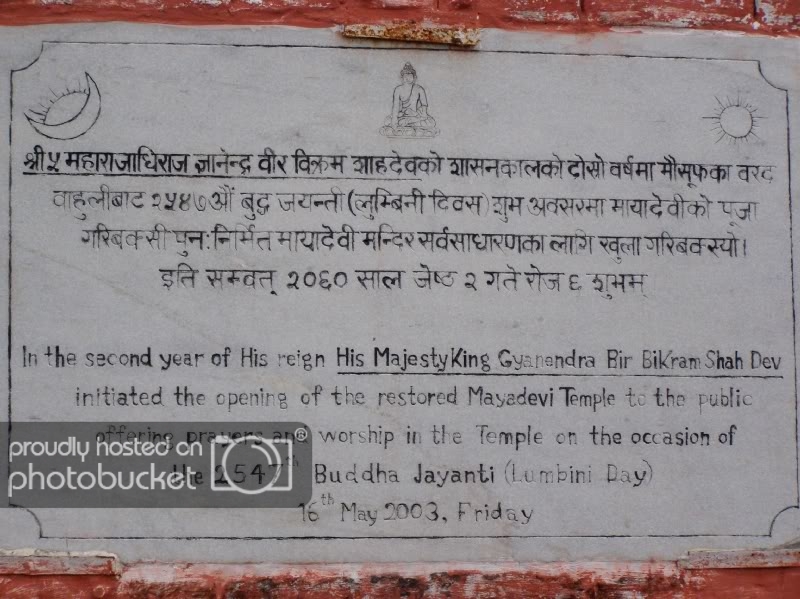 श्री ५ महाराजाधिराज ज्ञानेन्द्र वीर विक्रम शाहदेवको शासनकालको दोस्रो वर्षमा मौसूफका वरद
वाहुलीबाट २५४७औं बुद्ध जयन्ती (लुम्बिनी दिवस) शुभ अवसरमा मायादेवीको पूजा
गरिबक्सी पुन:निर्मित मायादेवी मन्दिर सर्वसाधारणका लागि खुला गरिबक्स्यो।
इति सम्वत् २०६० साल जेष्ठ २ गते रोज ६ शुभम्
In the second year of His reign His Majesty King Gyanendra Bir Bikram Shah Dev
initiated the opening of the restored Mayadevi Temple to the public
offering prayers and worship in the Temple on the occasion of
the 2547th Buddha Jayanti (Lumbini Day)
16th May 2003, Friday
proudly hosted on
photobucket